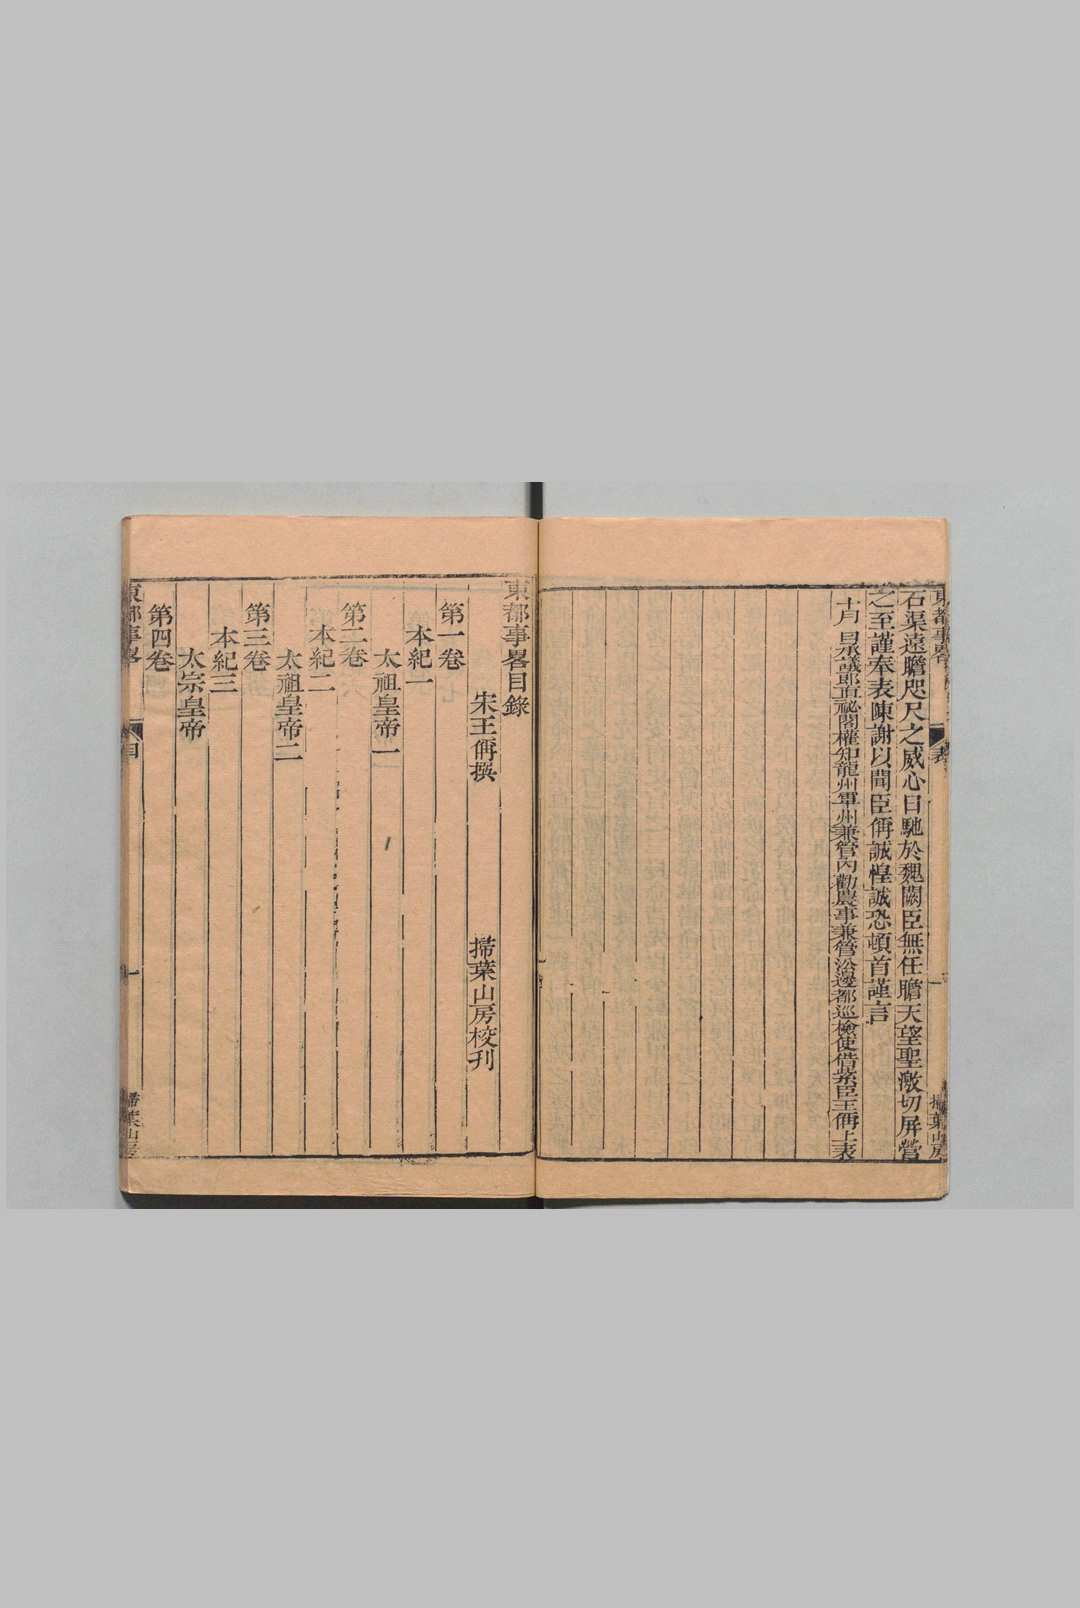 石渠遠瞻咫尺之威心日馳於魏闕臣無任瞻天望聖激切屏營
之至謹奉表陳謝以聞臣偁誠惶誠恐頓首謹言
十月 日承議郎直祕閣權知龍州軍州兼管內勸農事兼管沿邊都巡檢使借紫臣王偁上表
東都事畧
表
掃葉山房
東都事畧目錄
宋王偁撰 掃葉山房校刊
第一卷
本紀一
太祖皇帝一
第二卷
本紀二
太祖皇帝二
第三卷
本紀三
太宗皇帝
第四卷
東都事畧
目
一
掃葉山房